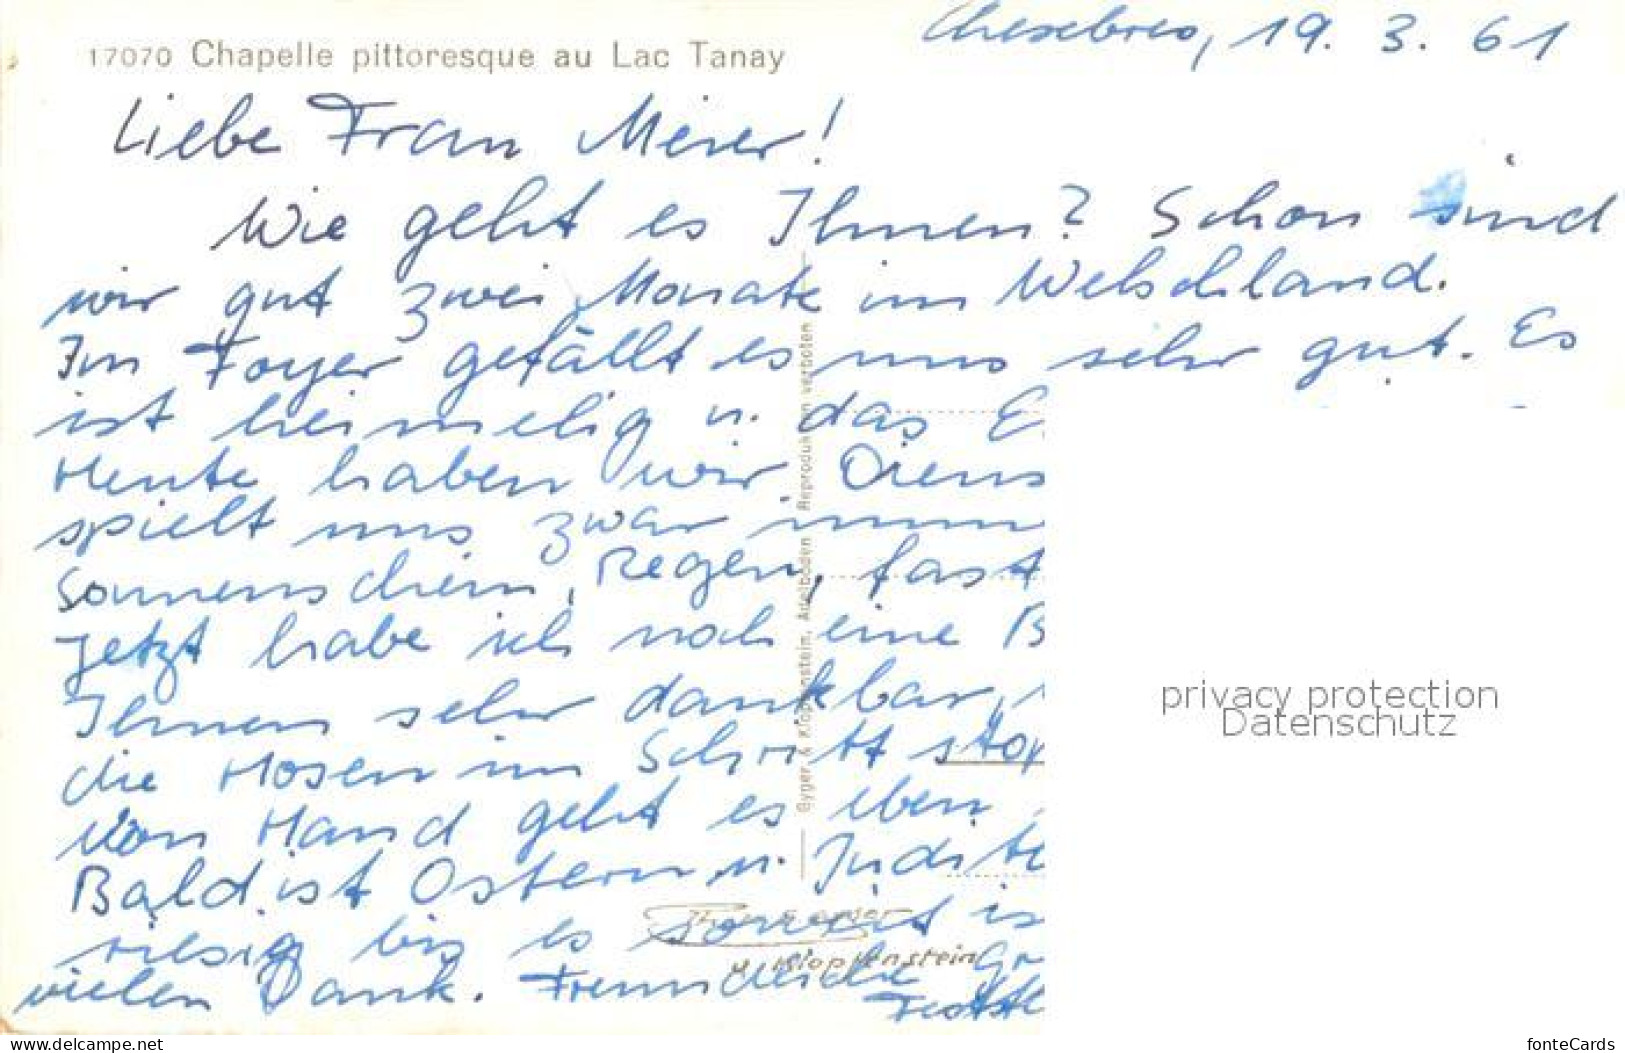 17070 Chapelle pittoresque au Lac Tanay
Chexbres, 19. 3. 61
Liebe Frau Meier!
Wie geht es Ihnen? Schon sind
wir gut zwei Monate im Welschland.
Im Foyer gefällt es uns sehr gut. Es
ist heimelig u. das E
Heute haben wir Diens
spielt uns zwar imm
Sonnenschein, Regen, fast
Jetzt habe ich noch eine B
Ihnen sehr dankbar,
die Hosen im Schritt stop
Von Hand geht es eben
Bald ist Ostern u. Judith
riesig bis es soweit is
vielen Dank. Freundliche Gr
Gyger & Klopfenstein, Adelboden Reproduktion verboten
Klopfenstein
privacy protection
Datenschutz
www.delcampe.net
fonteCards